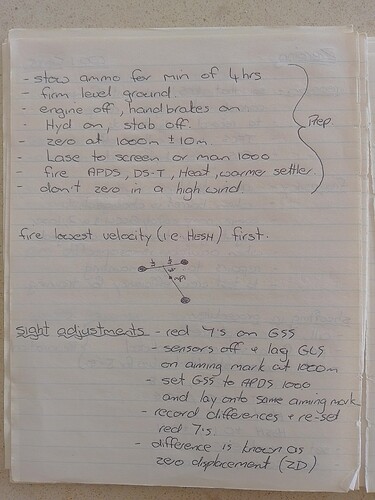 - stow ammo for min of 4hrs
- firm level ground.
- engine off, handbrakes on.
Hyd on, stab off.
- zero at 1000m ± 10m.
- Lase to screen or man 1000
- fire APDS, DS-T, Heat, warmer settler
- don't zero in a high wind.
Prep.
fire lowest velocity (i.e HESH) first.
MPI
sight adjustments - red 7's on GSS
- sensors off + lay GLS
on aiming mark at 1000m
- set GSS to APDS 1000
and lay onto same aiming mark
- record differences + re-set
red 7's.
- difference is known as
zero displacement (ZD)